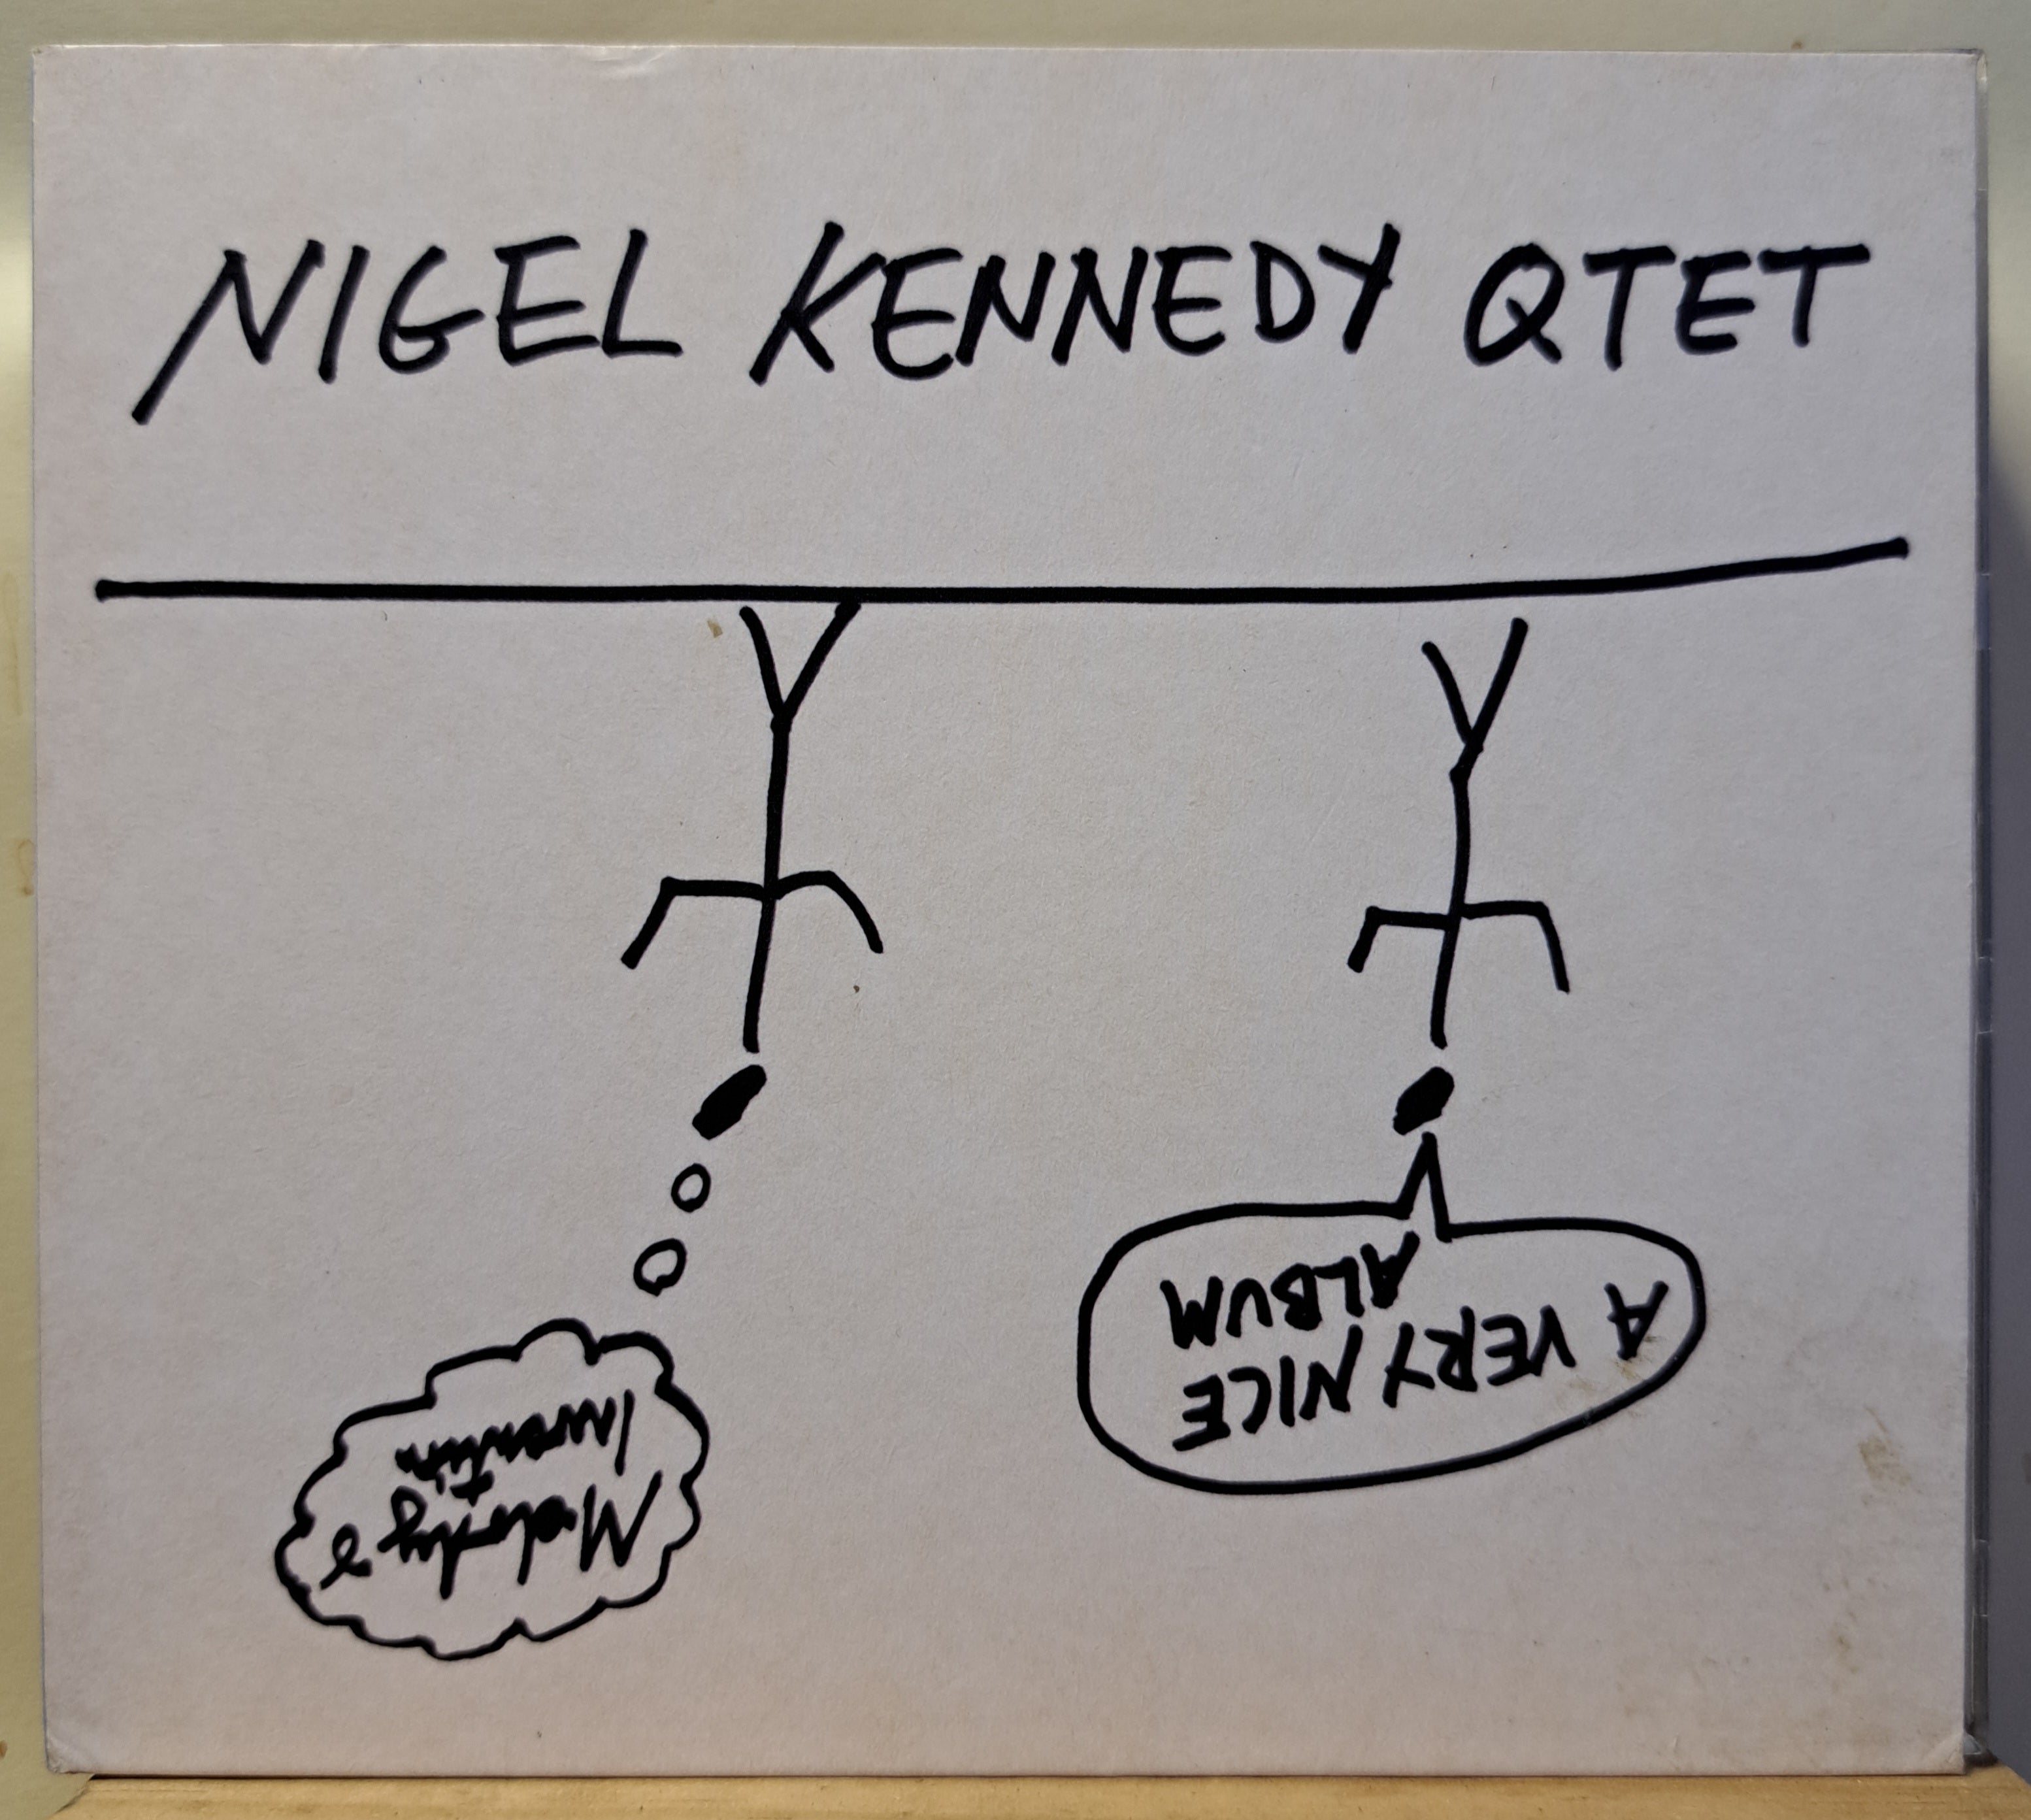 NIGEL KENNEDY QTET
A VERY NICE
ALBUM
Melody &
Invention